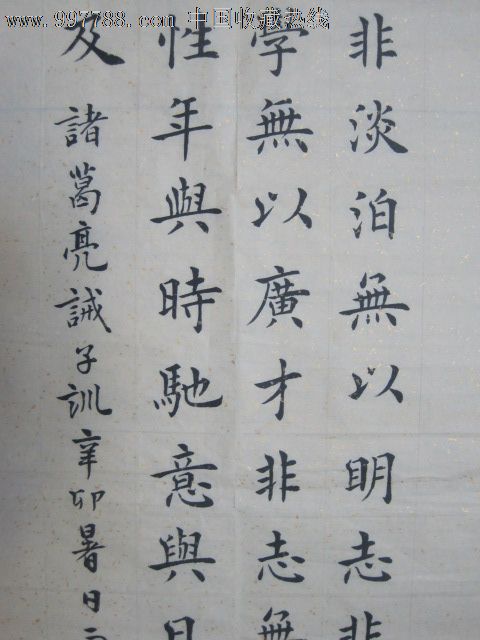 www.997788.com 中国收藏热线
非淡泊無以明志非
學無以廣才非志無
性年與時馳意與日
及 諸葛亮誡子訓辛卯暑日